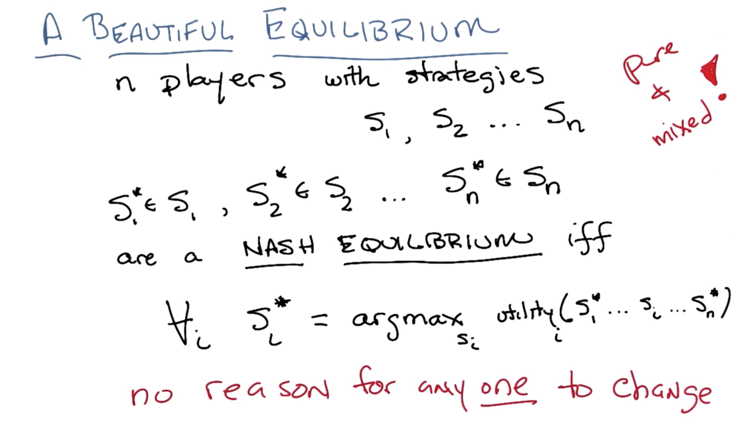 A BEAUTIFUL EQUILIBRIUM
n players with strategies
S₁, S₂ ... Sₙ
pure
&
mixed!
S₁* ∈ S₁, S₂* ∈ S₂ ... Sₙ* ∈ Sₙ
are a NASH EQUILIBRIUM iff
∀ᵢ Sᵢ* = argmax_sᵢ utilityᵢ(S₁* ... sᵢ ... Sₙ*)
no reason for any one to change